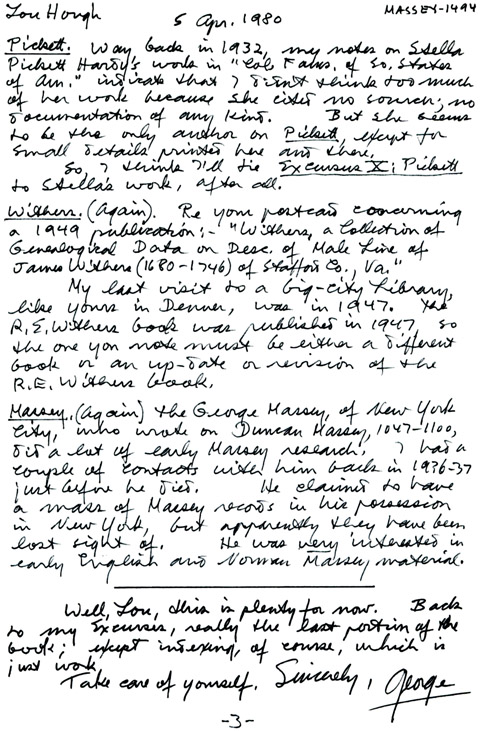 Lou Hough 5 Apr. 1980 MASSEY-1494
Pickett. Way back in 1932, my notes on Stella
Pickett Hardy's work in "Col. Fams. of So. States
of Am." indicate that I didn't think too much
of her work because she cited no source; no
documentation of any kind. But she seems
to be the only author on Pickett, except for
small details printed here and there.
So, I think I'll tie Excursus X: Pickett
to Stella's work, after all.
Withers. (Again). Re your postcard concerning
a 1949 publication:- "Withers, a Collection of
Genealogical Data on Desc. of Male Line of
James Withers (1680-1746) of Stafford Co., Va."
My last visit to a big-city Library,
like yours in Denver, was in 1947. The
R.E. Withers book was published in 1947, so
the one you note must be either a different
book or an up-date or revision of the
R.E. Withers book.
Massey. (Again) The George Massey, of New York
City, who wrote on Duncan Massey, 1047-1100,
did a lot of early Massey research. I had a
couple of contacts with him back in 1936-37
just before he died. He claimed to have
a mass of Massey records in his possession
in New York, but apparently they have been
lost sight of. He was very interested in
early English and Norman Massey material.
Well, Lou, this is plenty for now. Back
to my Excursus, really the last portion of the
book; except indexing, of course, which is
just work.
Take care of yourself. Sincerely, George
-3-